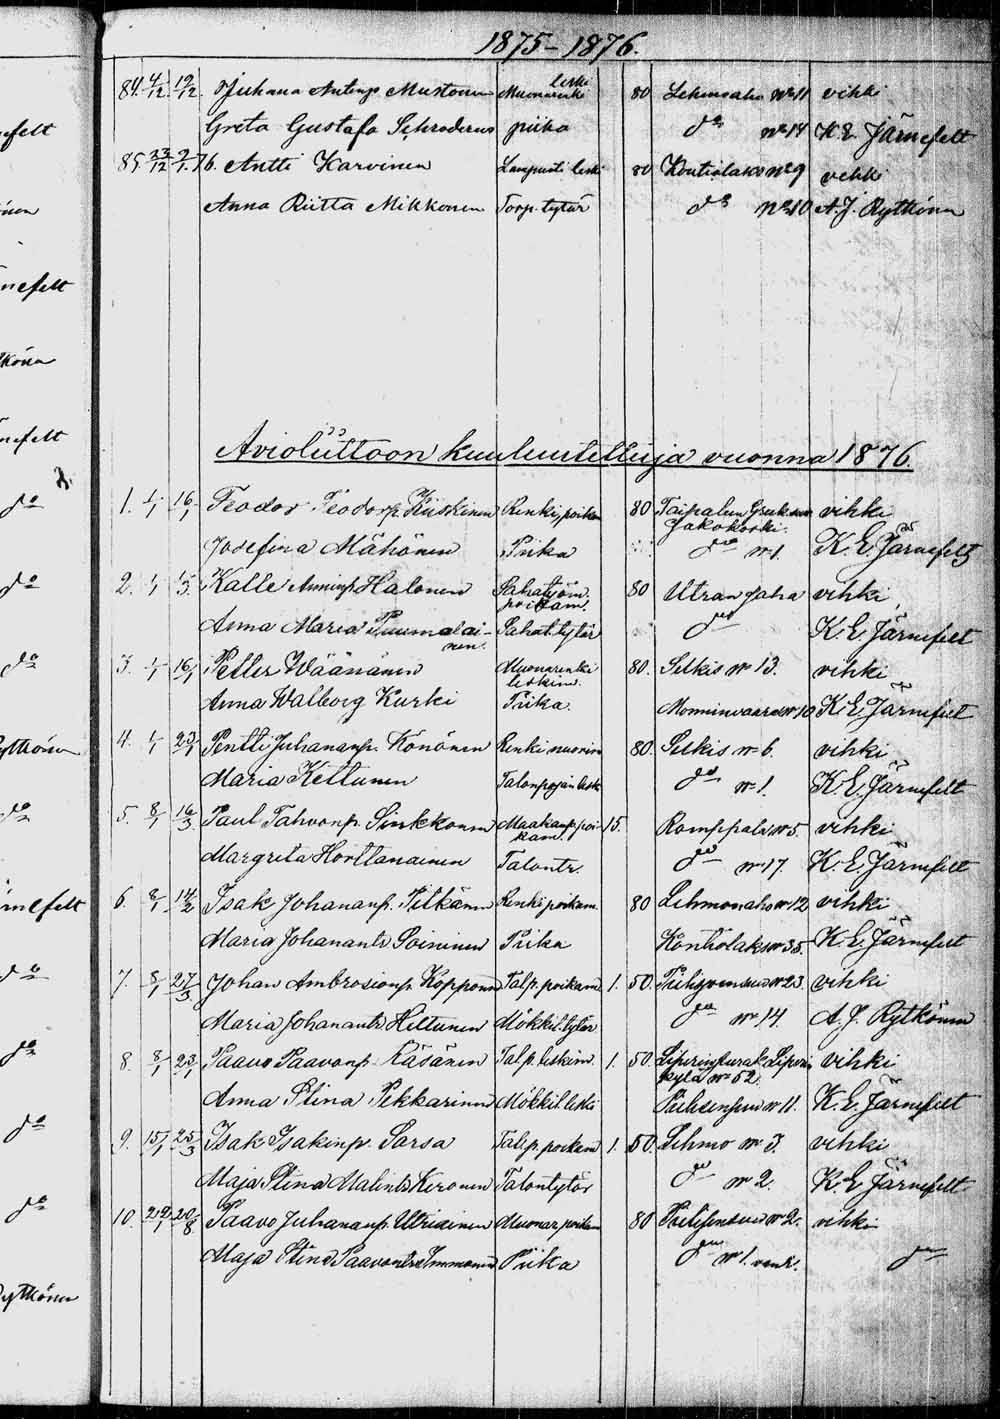 1875–1876.
84. 4/12 19/12 Juhana Antinp. Mustonen Muonarenki leski 80 Lehmoaho No 11 vihki
Greta Gustafa Schroderus piika do No 14 K. E. Järnefelt
85 23/12 9/1.76. Antti Karvinen Lampuoti leski 80 Kontiolaks No 9 vihki
Anna Riitta Mikkonen Torp. tytär do No 10 A. J. Rytkönen
Avioliittoon kuuluutettuja vuonna 1876.
1. 1/1 16/1 Feodor Feodorp. Kiiskinen Renki, poika 80 Taipaleen Gsuk.
Jakokoski. vihki
Josefina Mähönen Piika do No 1. K. E. Järnefelt
2. 1/1 Kalle Halonen Sahatyöm. 80 Utran saha vihki
poikam.
Anna Maria Puumalai- Sahat. tytär do K. E. Järnefelt
nen.
3. 1/1 16/1 Petter Wäänänen Muonarenki 80. Selkis No 13. vihki
leskim.
Anna Walborg Kurki Piika. Monninvaara No 10 K. E. Järnefelt
4. 1/1 23/1 Pentti Juhananp. Könönen Renki nuorim 80. Selkis No 6. vihki
Maria Kettunen Talonpojan leski do No 1. K. E. Järnefelt
5. 8/1 16/3 Paul Tahvonp. Sinkkonen Maakaup. poi- 15. Romppala No 5. vihki
kam.
Margreta Horttanainen Talontr. do No 17. K. E. Järnefelt
6. 8/1 14/2 Isak Johananp. Pitkänen Renki poikam. 80 Lehmonaho No 12 vihki
Maria Johanantr Soininen Piika Kontiolaks No 35. K. E. Järnefelt
7. 8/1 27/3 Johan Ambrosionp. Kopponen Talp. poikam 1. 50. No 23. vihki
Maria Johanantr Hiltunen Mökkil. tytär do No 14. A. J. Rytkönen
8. 8/1 23/1 Paavo Paavonp. Räsänen Talp. leskim. 1. 50. Liperin
kylä No 52. vihki
Anna Stina Pekkarinen Mökkil. leski No 11. K. E. Järnefelt
9. 15/1 25/3 Isak Isakinp. Sarsa Talp. poikam 1. 50. Lehmo No 3. vihki
Maja Stina Malintr Kironen Talontytär do No 2. K. E. Järnefelt
10. 29/1 20/8 Paavo Juhananp. Utriainen Muonar. poikam 80 No 2. vihki
Maja Stina Paavontr Immonen Piika do No 1. do